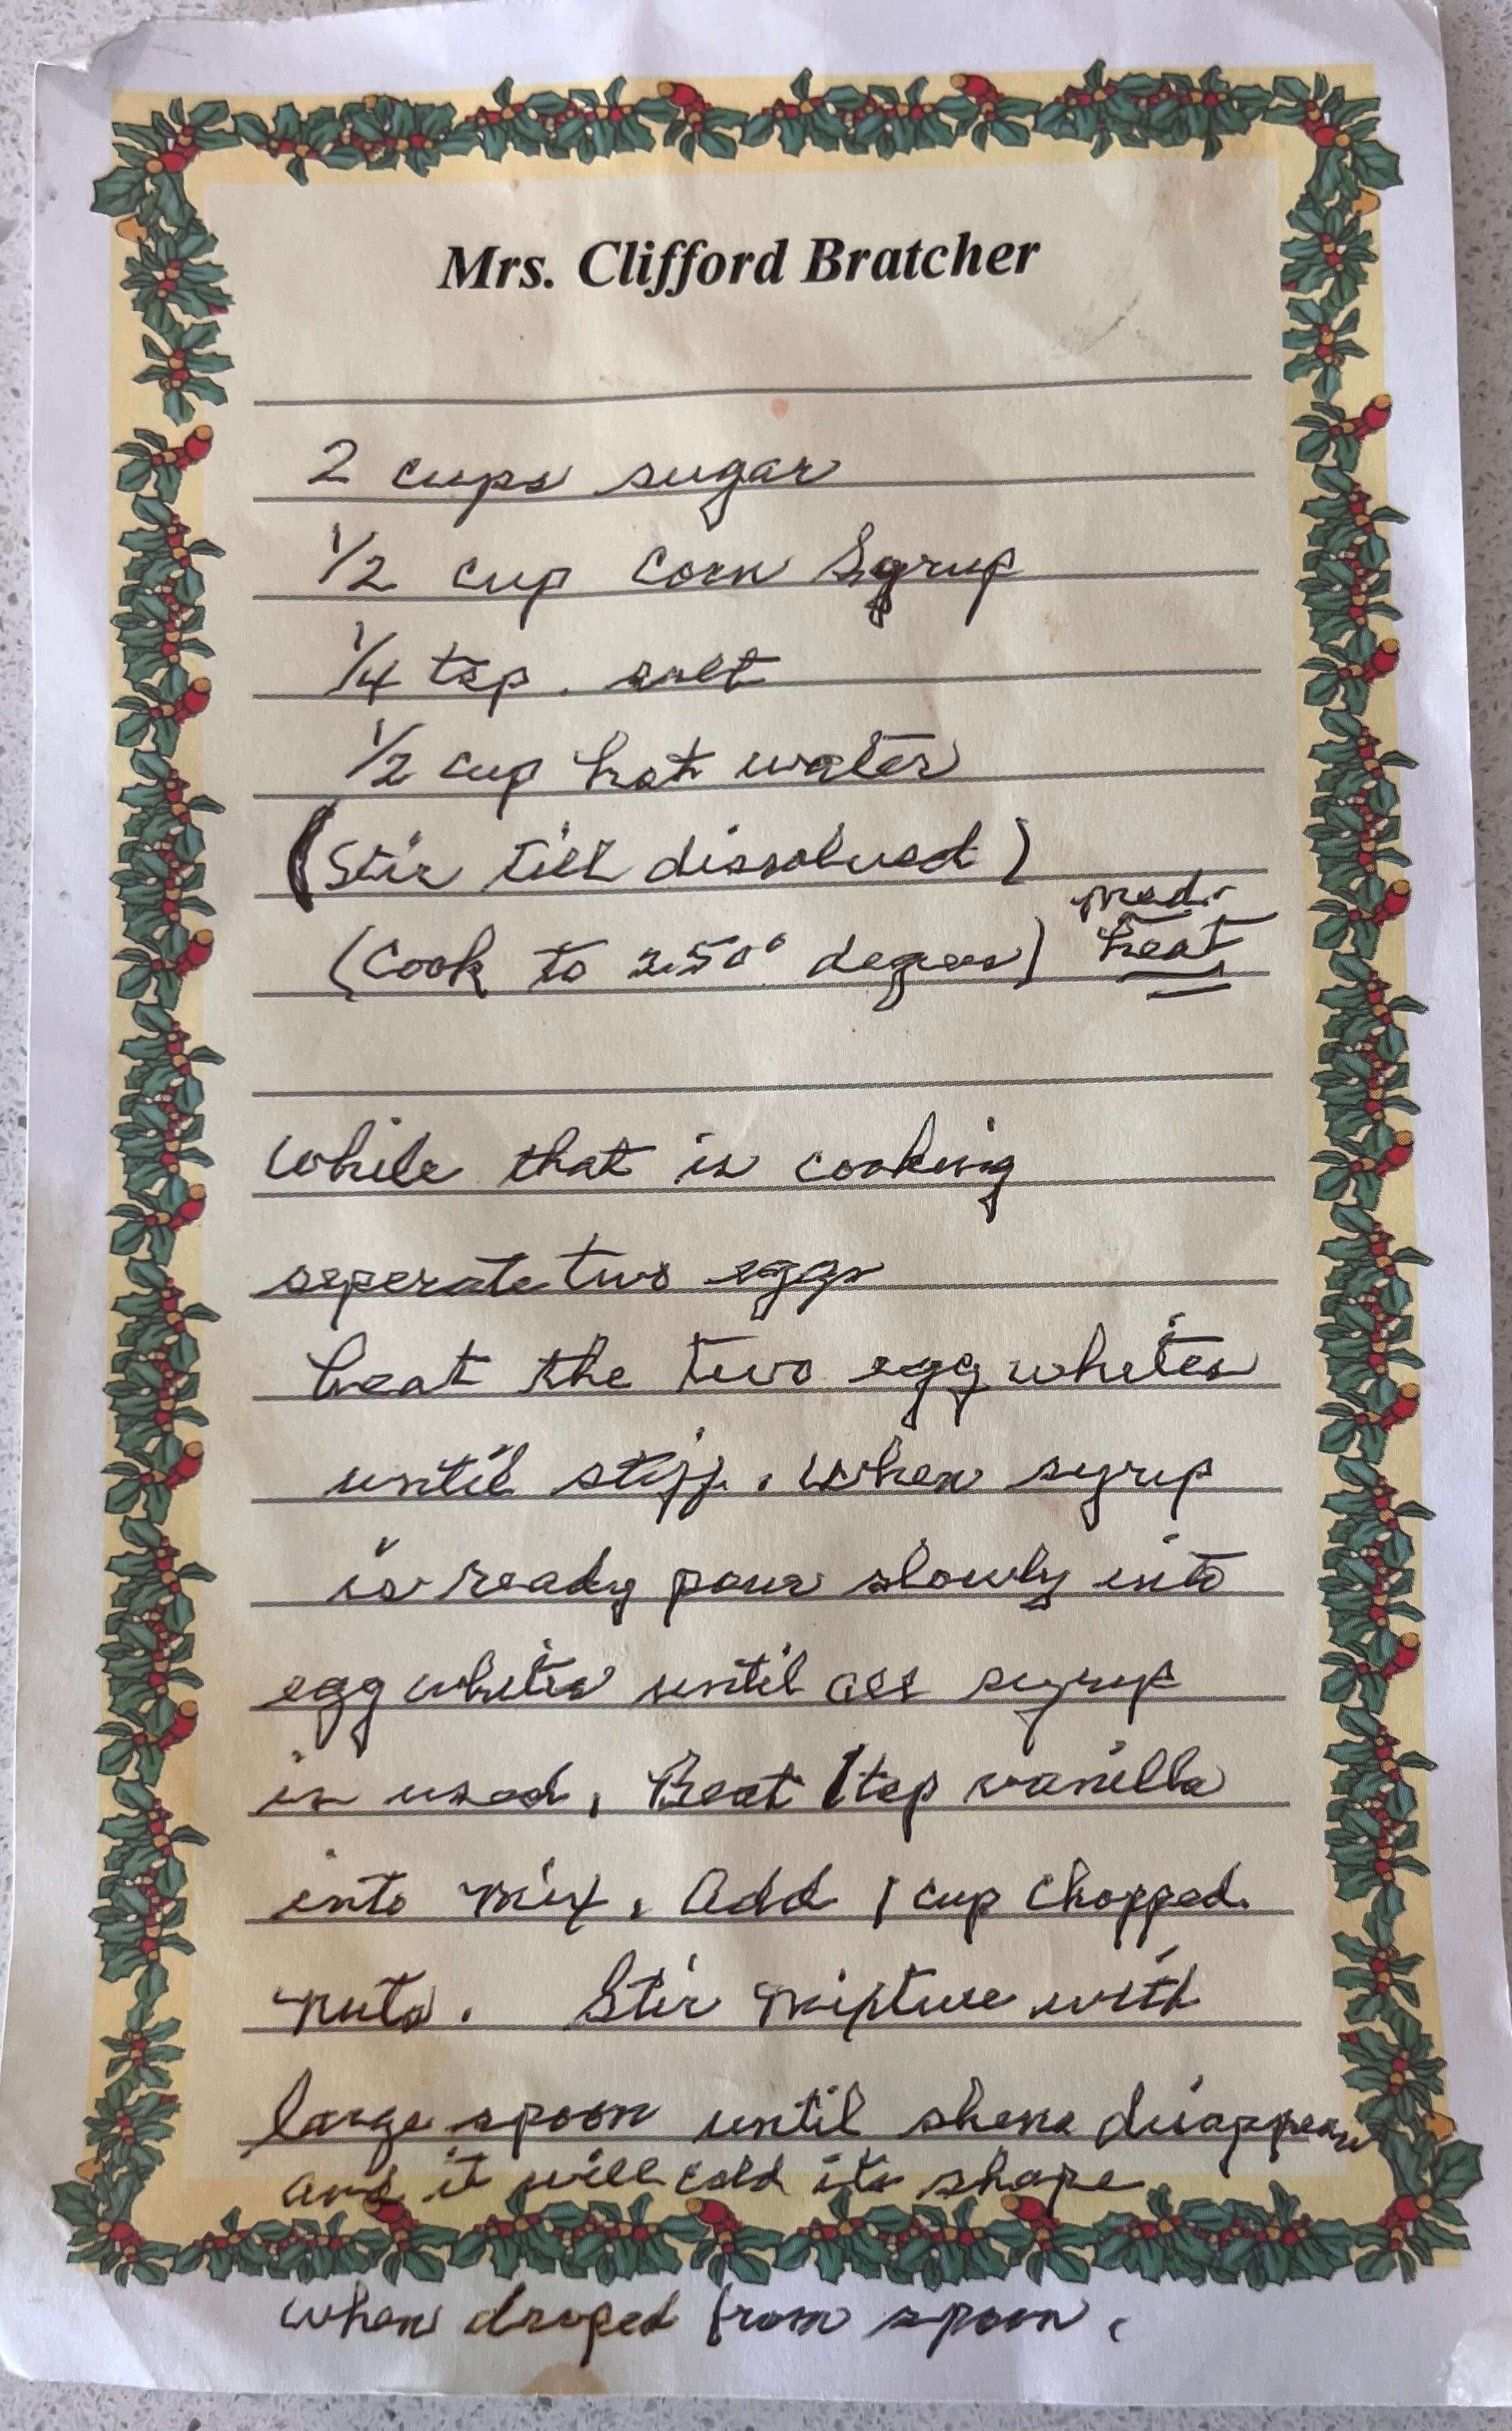 Mrs. Clifford Bratcher
2 cups sugar
1/2 cup corn Syrup
1/4 tsp. salt
1/2 cup hot water
(Stir till dissolved)
(Cook to 250° degrees) med. heat
While that is cooking
seperate two eggs
beat the two egg whites
until stiff. When syrup
is ready pour slowly into
egg whites until all syrup
is used. Beat 1 tsp vanilla
into mix. Add 1 cup chopped
nuts. Stir mixture with
large spoon until shene disappears
and it will hold its shape
when droped from spoon.